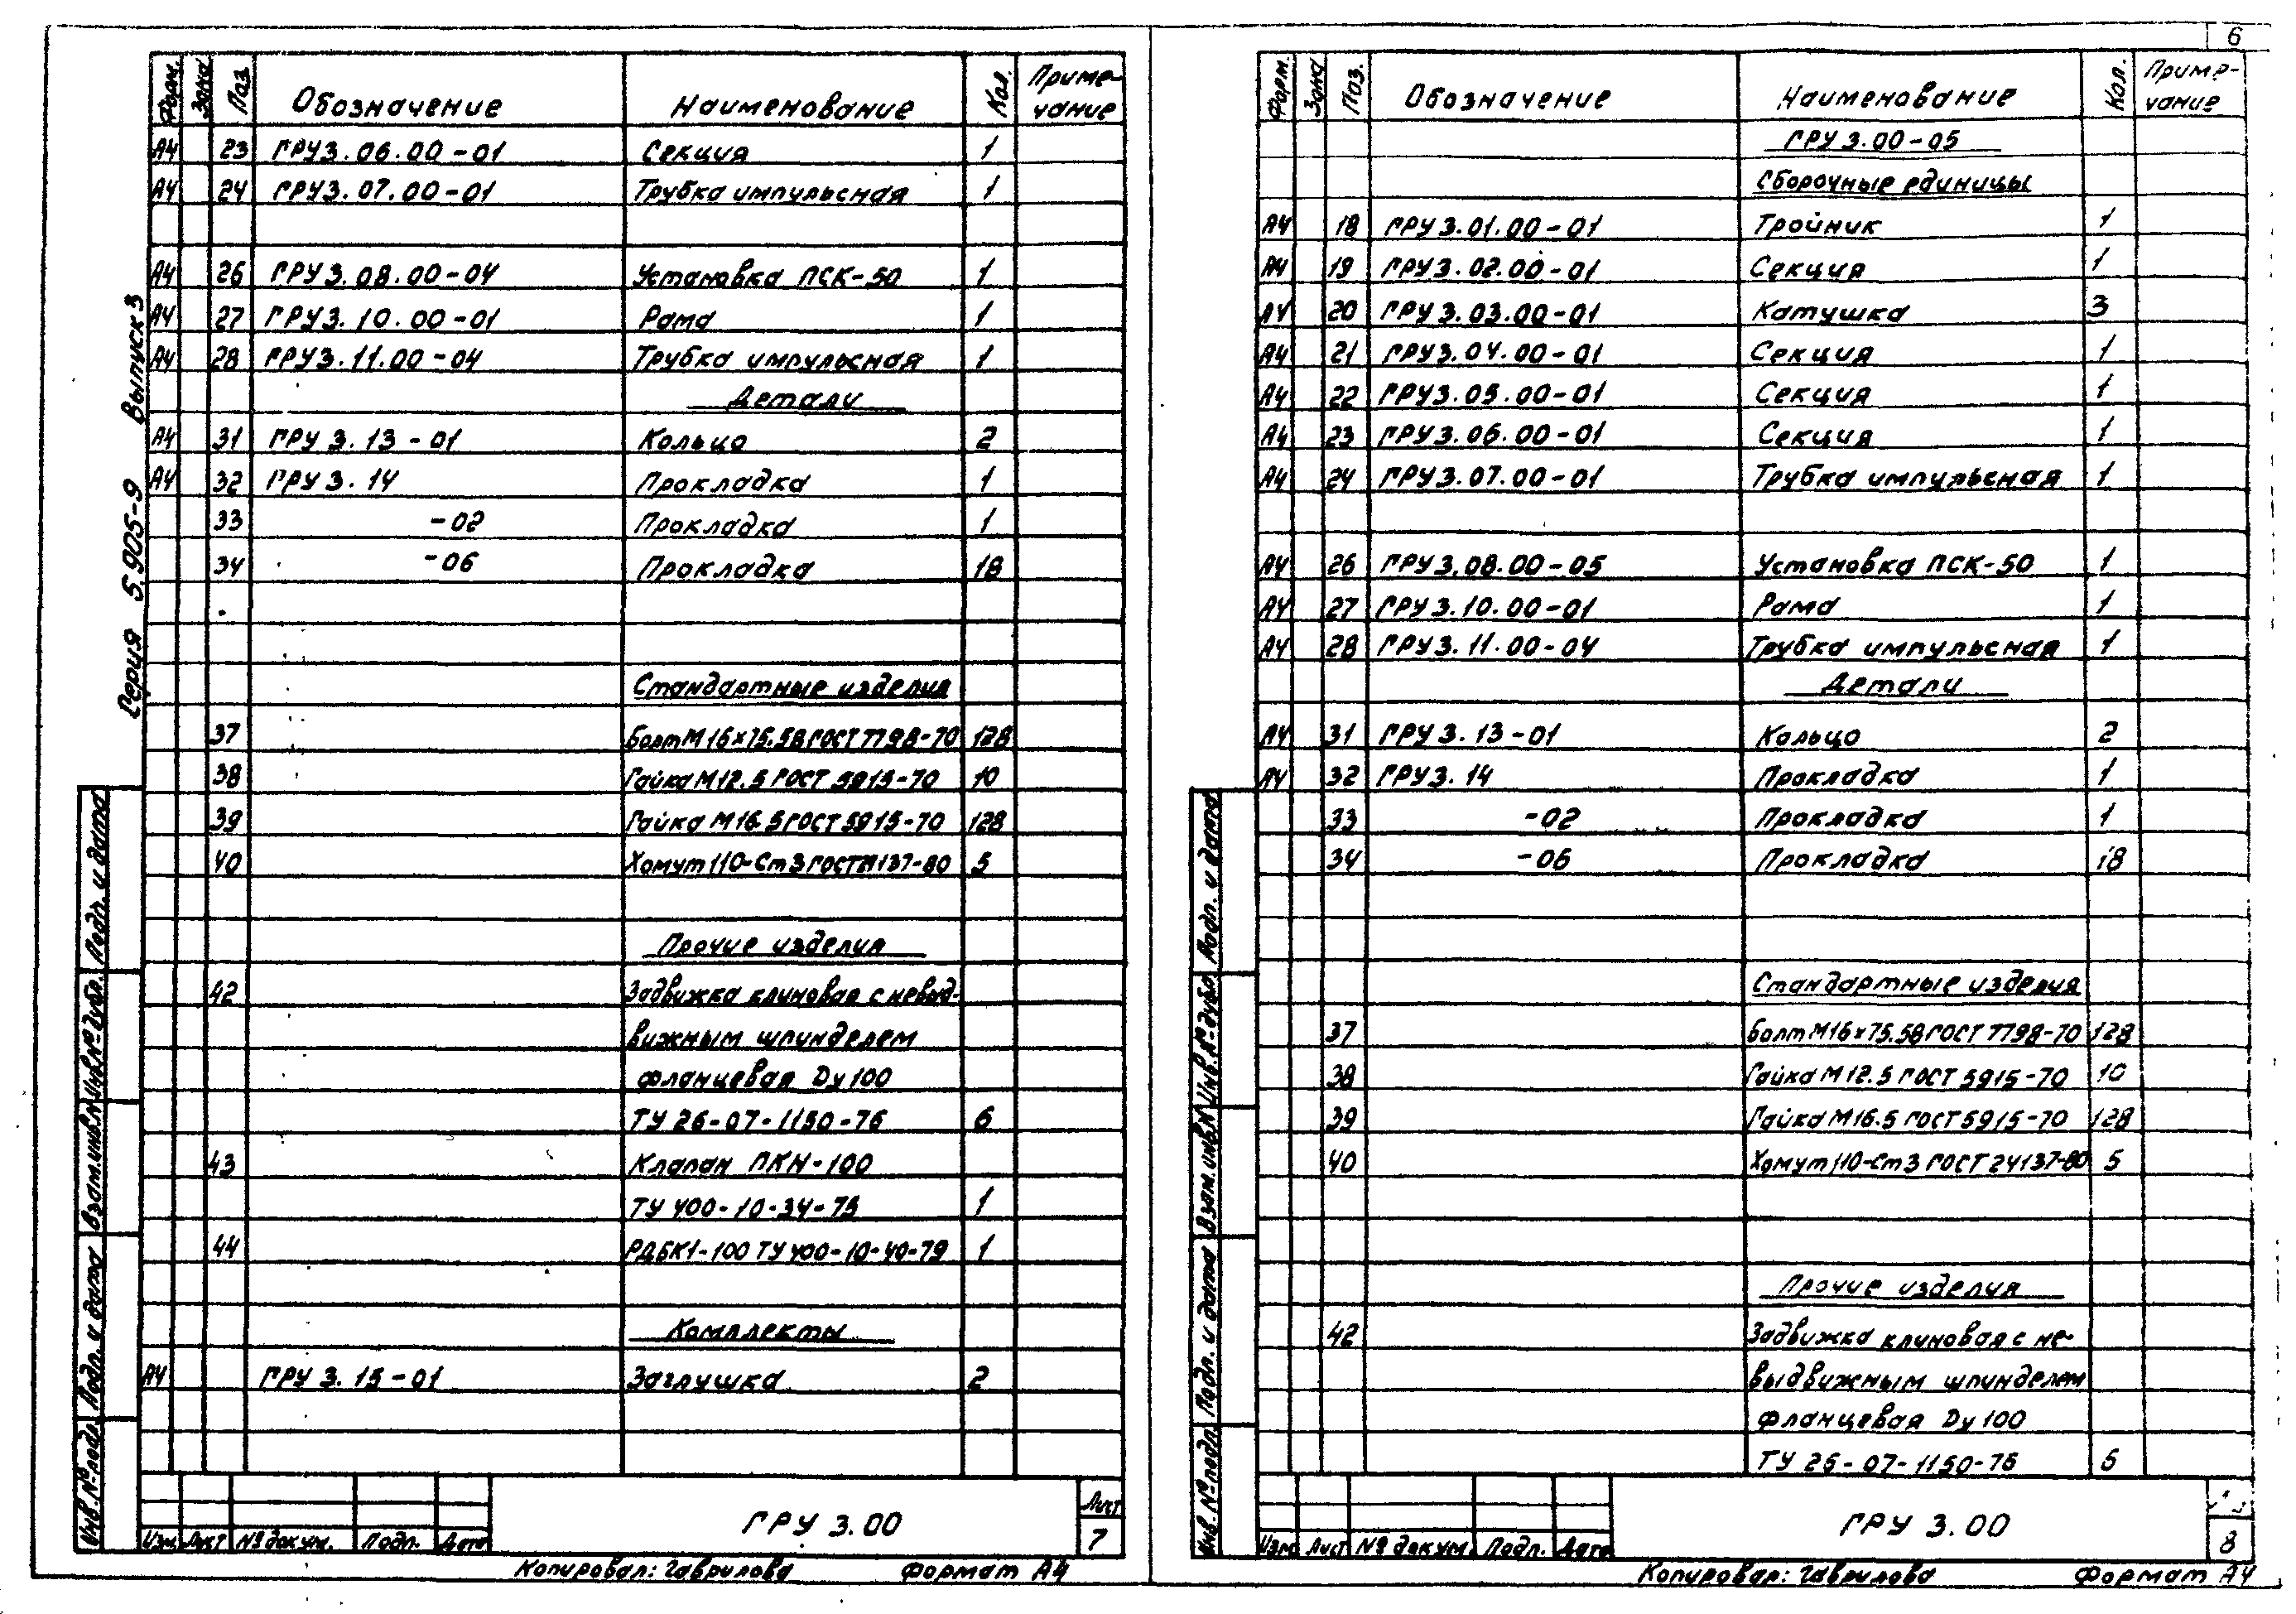 6
Серия 5.905-9 Выпуск 3
Форм. Зона Поз. Обозначение Наименование Кол. Приме-
чание
А4 23 ГРУ 3.06.00-01 Секция 1
А4 24 ГРУ 3.07.00-01 Трубка импульсная 1
А4 26 ГРУ 3.08.00-04 Установка ПСК-50 1
А4 27 ГРУ 3.10.00-01 Рама 1
А4 28 ГРУ 3.11.00-04 Трубка импульсная 1
Детали
А4 31 ГРУ 3.13-01 Кольцо 2
А4 32 ГРУ 3.14 Прокладка 1
33 -02 Прокладка 1
34 -06 Прокладка 18
Стандартные изделия
37 Болт М16х75.58 ГОСТ 7798-70 128
38 Гайка М12.5 ГОСТ 5915-70 10
39 Гайка М16.5 ГОСТ 5915-70 128
40 Хомут 110-Ст3 ГОСТ 24137-80 5
Прочие изделия
42 Задвижка клиновая с невыд-
вижным шпинделем
фланцевая Dy 100
ТУ 26-07-1150-76 6
43 Клапан ПКН-100
ТУ 400-10-34-75 1
44 РДБК1-100 ТУ 400-10-40-79 1
Комплекты
А4 ГРУ 3.15-01 Заглушка 2
Инв.№подл. Подп. и дата Взам.инв.№ Инв.№дубл. Подп. и дата
Изм Лист №докум. Подп. Дата
ГРУ 3.00
Лист
7
Копировал: Гаврилова Формат А4
Форм. Зона Поз. Обозначение Наименование Кол. Приме-
чание
ГРУ 3.00-05
Сборочные единицы
А4 18 ГРУ 3.01.00-01 Тройник 1
А4 19 ГРУ 3.02.00-01 Секция 1
А4 20 ГРУ 3.03.00-01 Катушка 3
А4 21 ГРУ 3.04.00-01 Секция 1
А4 22 ГРУ 3.05.00-01 Секция 1
А4 23 ГРУ 3.06.00-01 Секция 1
А4 24 ГРУ 3.07.00-01 Трубка импульсная 1
А4 26 ГРУ 3.08.00-05 Установка ПСК-50 1
А4 27 ГРУ 3.10.00-01 Рама 1
А4 28 ГРУ 3.11.00-04 Трубка импульсная 1
Детали
А4 31 ГРУ 3.13-01 Кольцо 2
А4 32 ГРУ 3.14 Прокладка 1
33 -02 Прокладка 1
34 -06 Прокладка 18
Стандартные изделия
37 Болт М16х75.58 ГОСТ 7798-70 128
38 Гайка М12.5 ГОСТ 5915-70 10
39 Гайка М16.5 ГОСТ 5915-70 128
40 Хомут 110-Ст3 ГОСТ 24137-80 5
Прочие изделия
42 Задвижка клиновая с не-
выдвижным шпинделем
фланцевая Dy 100
ТУ 26-07-1150-76 6
Инв.№подл. Подп. и дата Взам.инв.№ Инв.№дубл. Подп. и дата
Изм Лист №докум. Подп. Дата
ГРУ 3.00
8
Копировал: Гаврилова Формат А4